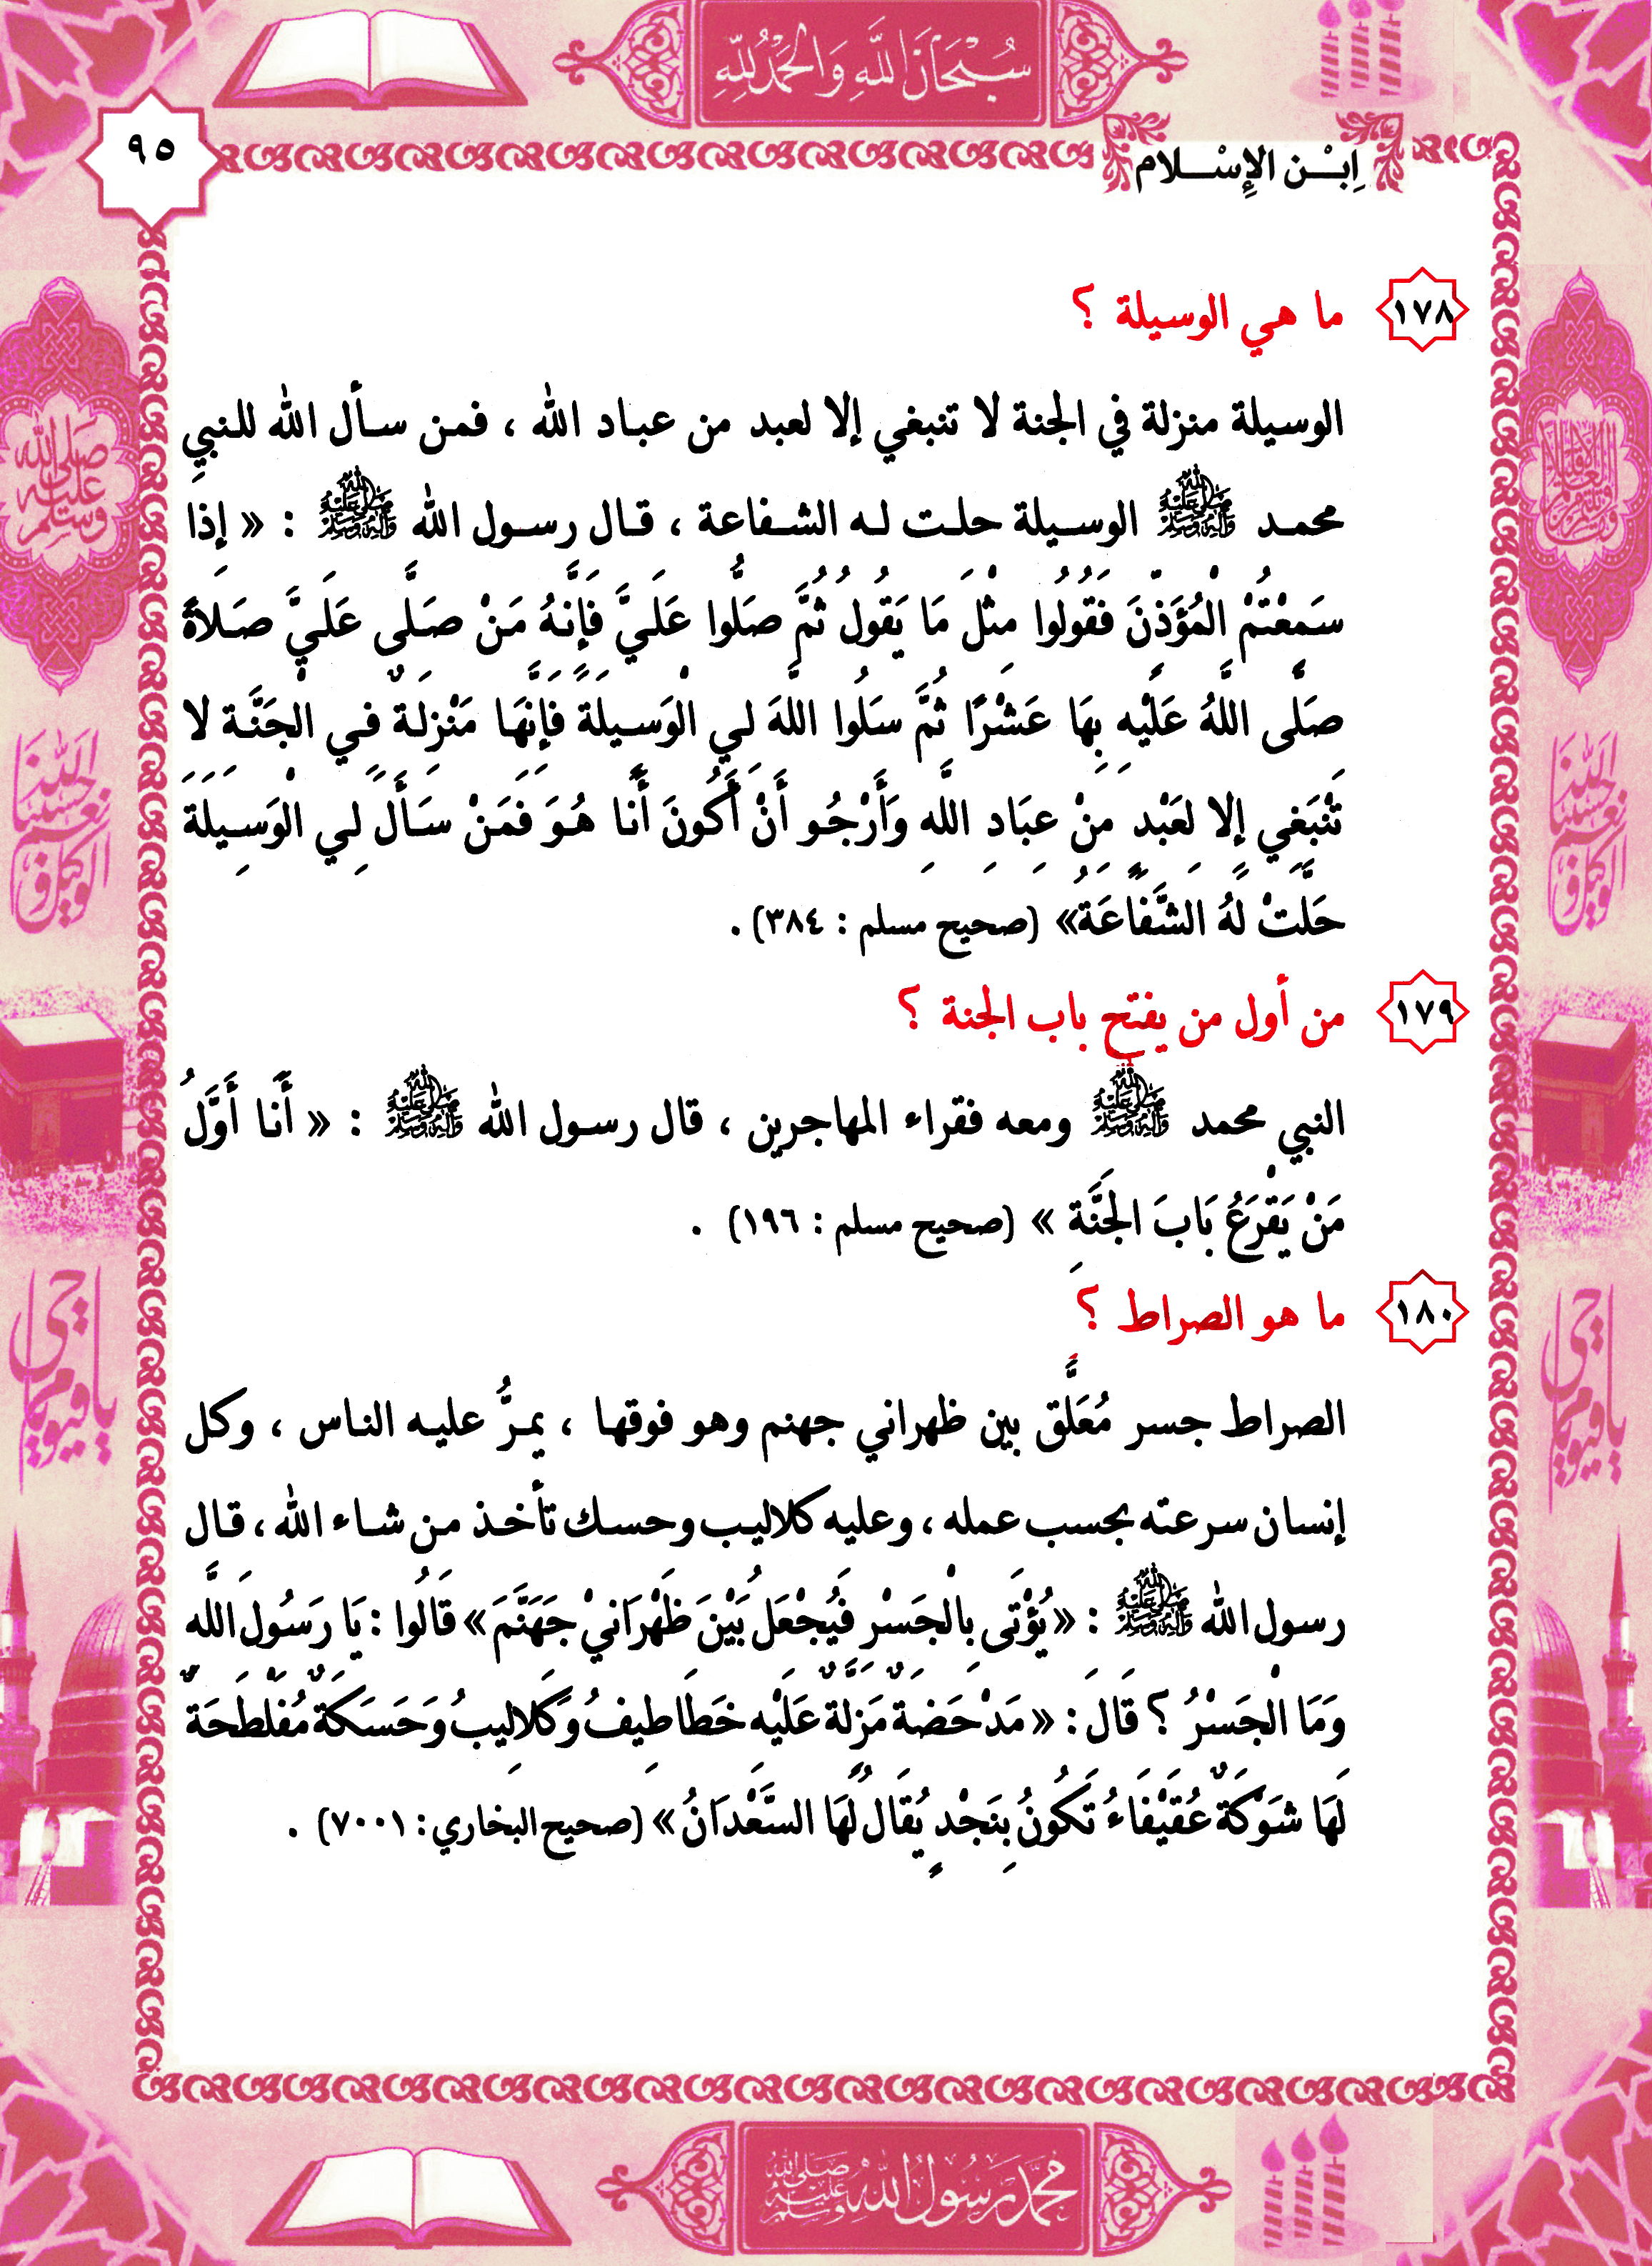 سُبْحَانَ اللَّهِ وَالْحَمْدُ لِلَّهِ
٩٥
اِبْن الإِسْلام
١٧٨ ما هي الوسيلة ؟
الوسيلة منزلة في الجنة لا تنبغي إلا لعبد من عباد الله ، فمن سأل الله للنبي
محمد ﷺ الوسيلة حلت له الشفاعة ، قال رسول الله ﷺ : « إِذا
سَمِعْتُمْ الْمُؤَذِّنَ فَقُولُوا مِثْلَ مَا يَقُولُ ثُمَّ صَلُّوا عَلَيَّ فَإِنَّهُ مَنْ صَلَّى عَلَيَّ صَلاةً
صَلَّى اللَّهُ عَلَيْهِ بِهَا عَشْرًا ثُمَّ سَلُوا اللَّهَ لِي الْوَسِيلَةَ فَإِنَّهَا مَنْزِلَةٌ فِي الْجَنَّةِ لا
تَنْبَغِي إِلا لِعَبْدٍ مِنْ عِبَادِ اللَّهِ وَأَرْجُو أَنْ أَكُونَ أَنَا هُوَ فَمَنْ سَأَلَ لِي الْوَسِيلَةَ
حَلَّتْ لَهُ الشَّفَاعَةُ» (صحيح مسلم : ٣٨٤) .
١٧٩ من أول من يفتح باب الجنة ؟
النبي محمد ﷺ ومعه فقراء المهاجرين ، قال رسول الله ﷺ : « أَنَا أَوَّلُ
مَنْ يَقْرَعُ بَابَ الْجَنَّةِ » (صحيح مسلم : ١٩٦) .
١٨٠ ما هو الصراط ؟
الصراط جسر مُعَلَّق بين ظهراني جهنم وهو فوقها ، يمرُّ عليه الناس ، وكل
إنسان سرعته بحسب عمله ، وعليه كلاليب وحسك تأخذ من شاء الله ، قال
رسول الله ﷺ : «يُؤْتَى بِالْجَسْرِ فَيُجْعَلُ بَيْنَ ظَهْرَانيْ جَهَنَّمَ» قَالُوا : يَا رَسُولَ اللَّهِ
وَمَا الْجَسْرُ ؟ قَالَ : « مَدْحَضَةٌ مَزِلَّةٌ عَلَيْهِ خَطَاطِيفُ وَكَلالِيبُ وَحَسَكَةٌ مُفَلْطَحَةٌ
لَهَا شَوْكَةٌ عُقَيْفَاءُ تَكُونُ بِنَجْدٍ يُقَالُ لَهَا السَّعْدَانُ » (صحيح البخاري : ٧٠٠١) .
صلى الله عليه وسلم
حسبنا الله ونعم الوكيل
حسبنا الله ونعم الوكيل
يا حي يا قيوم
يا حي يا قيوم
محمد رسول الله صلى الله عليه وسلم